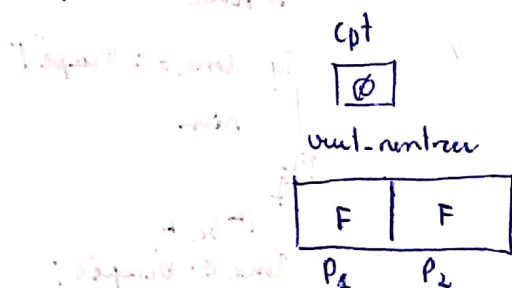 cpt
Ø
veut-rentrer
F F
P1 P2